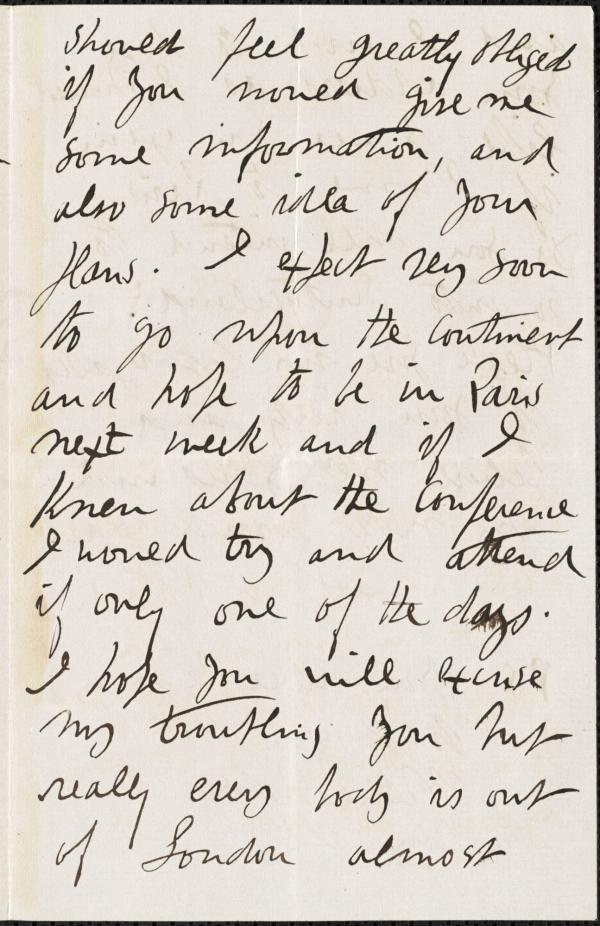 should feel greatly obliged
if you would give me
some information, and
also some idea of your
plans. I expect very soon
to go upon the Continent
and hope to be in Paris
next week and if I
knew about the Conference
I would try and attend
if only one of the days.
I hope you will excuse
my troubling you but
really every body is out
of London almost